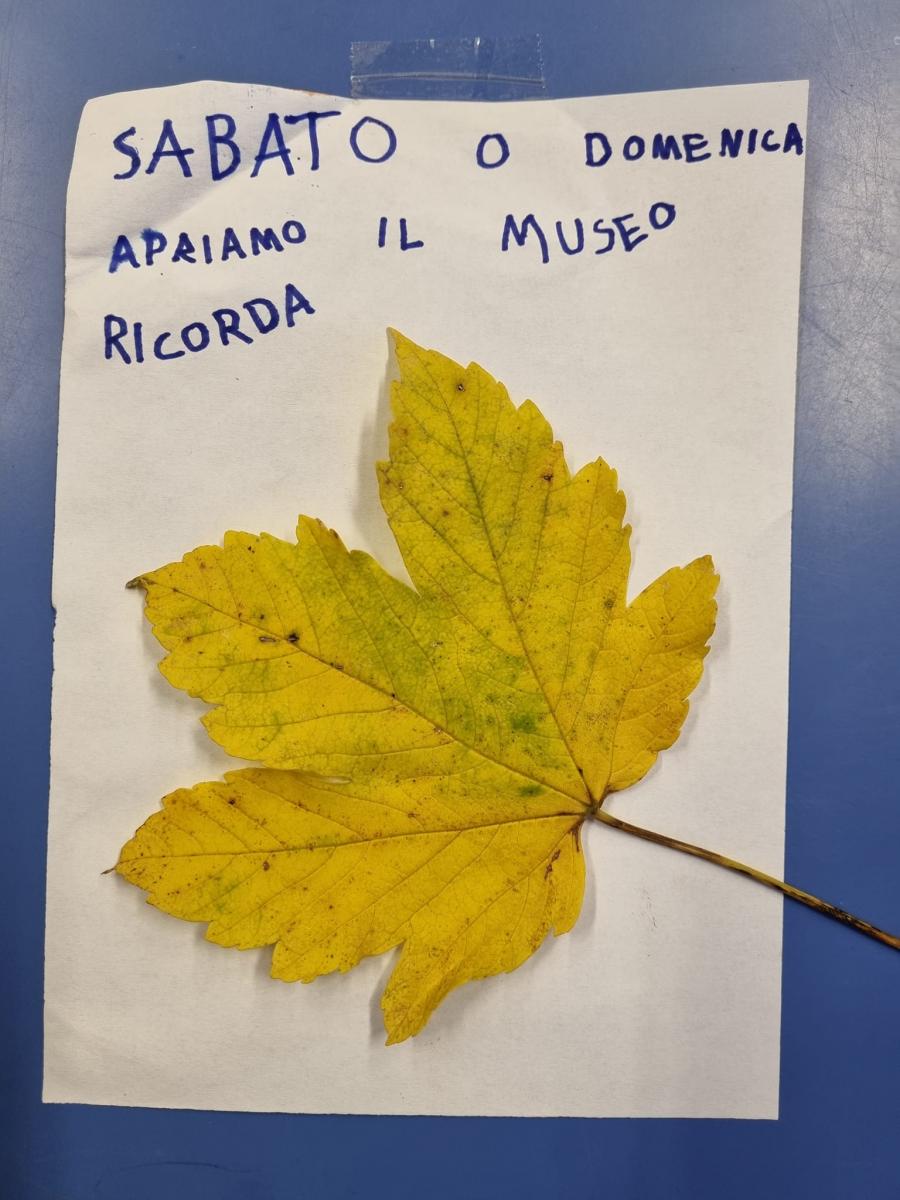 SABATO O DOMENICA
APRIAMO IL MUSEO
RICORDA